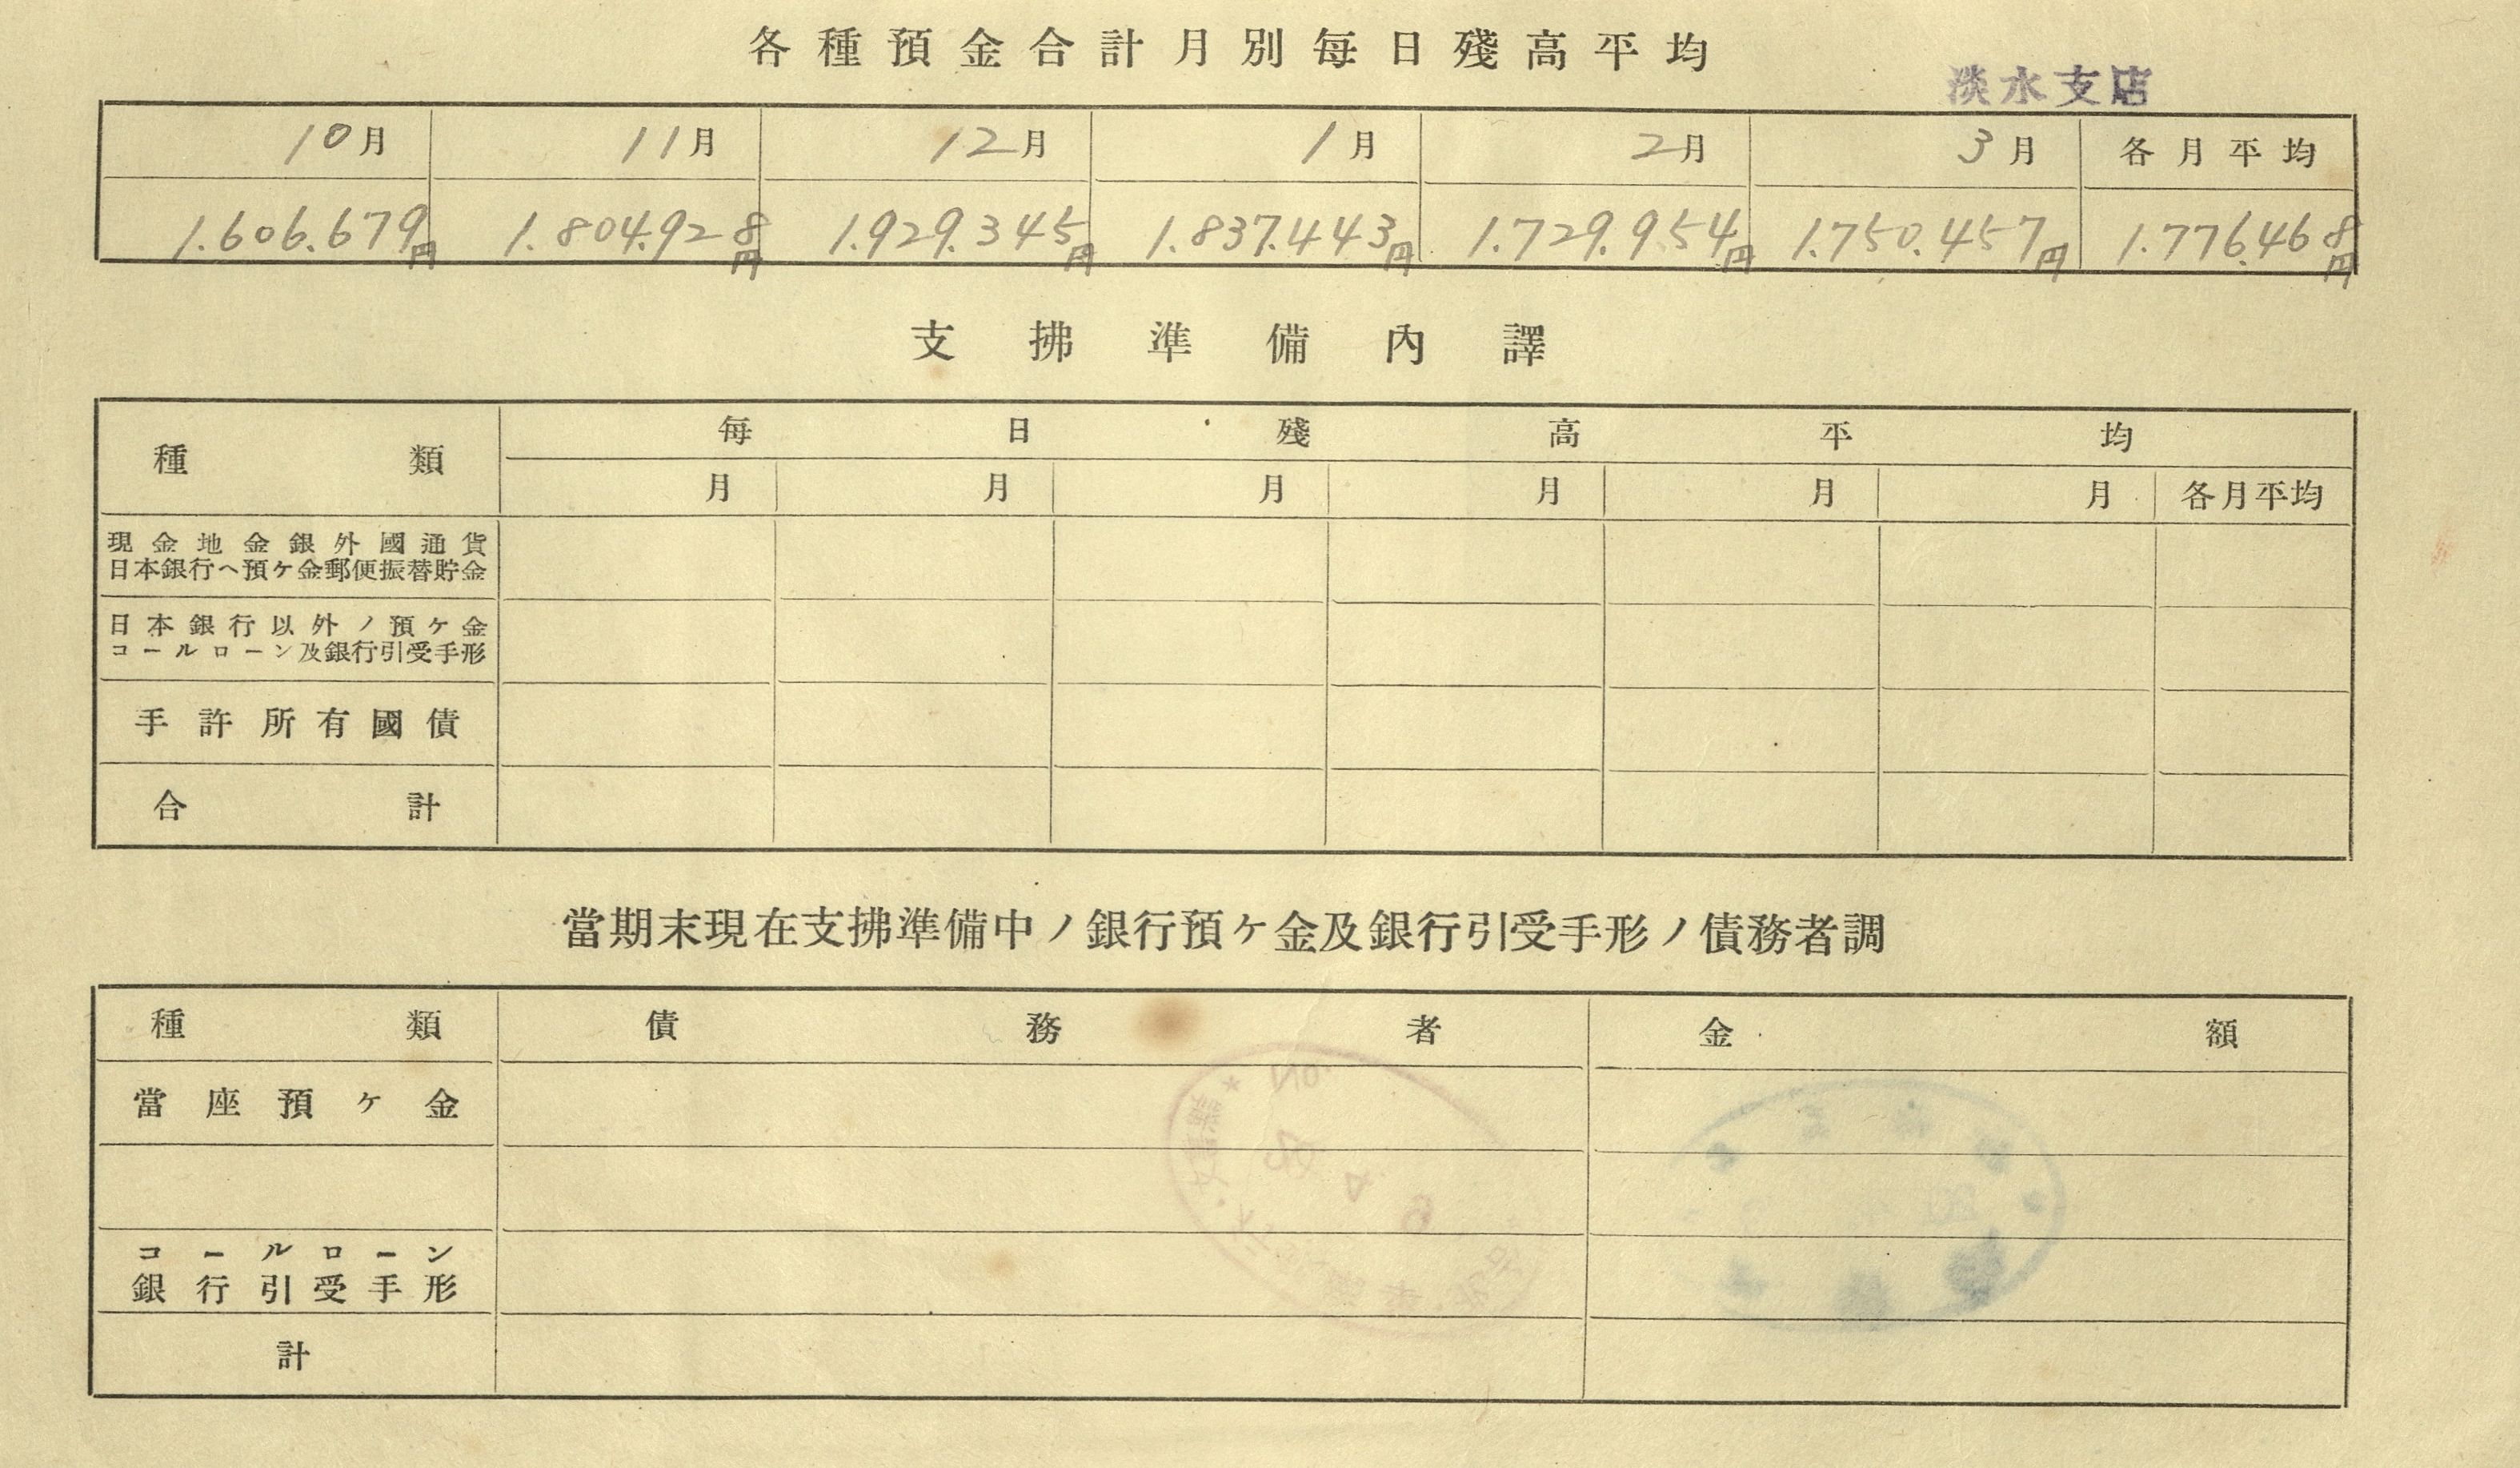 各種預金合計月別每日殘高平均
淡水支店
10月 11月 12月 1月 2月 3月 各月平均
1.606.679円 1.804.928円 1.929.345円 1.837.443円 1.729.954円 1.750.457円 1.776.468円
支拂準備內譯
種類 每日殘高平均
月 月 月 月 月 月 各月平均
現金地金銀外國通貨
日本銀行ヘ預ケ金郵便振替貯金
日本銀行以外ノ預ケ金
コールローン及銀行引受手形
手許所有國債
合計
當期末現在支拂準備中ノ銀行預ケ金及銀行引受手形ノ債務者調
種類 債務者 金額
當座預ケ金
コールローン
銀行引受手形
計